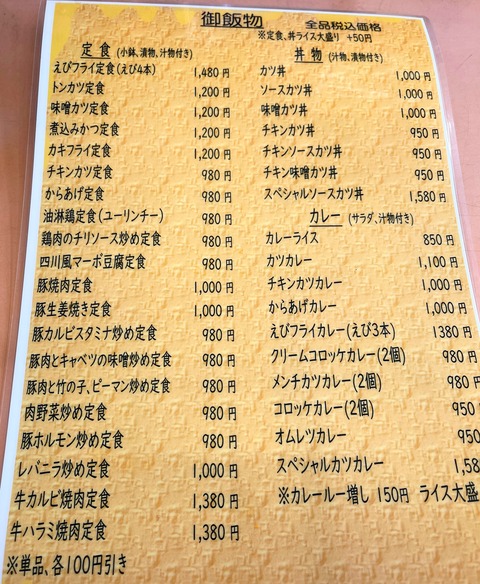 御飯物
全品税込価格
※定食、丼ライス大盛り +50円
定食 (小鉢、漬物、汁物付き)
えびフライ定食(えび4本) 1,480円
トンカツ定食 1,200円
味噌カツ定食 1,200円
煮込みかつ定食 1,200円
カキフライ定食 1,200円
チキンカツ定食 980円
からあげ定食 980円
油淋鶏定食(ユーリンチー) 980円
鶏肉のチリソース炒め定食 980円
四川風マーボ豆腐定食 980円
豚焼肉定食 1,000円
豚生姜焼き定食 1,000円
豚カルビスタミナ炒め定食 980円
豚肉とキャベツの味噌炒め定食 980円
豚肉と竹の子、ピーマン炒め定食 980円
肉野菜炒め定食 980円
豚ホルモン炒め定食 980円
レバニラ炒め定食 1,000円
牛カルビ焼肉定食 1,380円
牛ハラミ焼肉定食 1,380円
※単品、各100円引き
丼物 (汁物、漬物付き)
カツ丼 1,000円
ソースカツ丼 1,000円
味噌カツ丼 1,000円
チキンカツ丼 950円
チキンソースカツ丼 950円
チキン味噌カツ丼 950円
スペシャルソースカツ丼 1,580円
カレー (サラダ、汁物付き)
カレーライス 850円
カツカレー 1,100円
チキンカツカレー 1,000円
からあげカレー 1,000円
えびフライカレー(えび3本) 1380円
クリームコロッケカレー(2個) 980円
メンチカツカレー(2個) 980円
コロッケカレー(2個) 950
オムレツカレー 950
スペシャルカツカレー 1,58
※カレールー増し 150円 ライス大盛